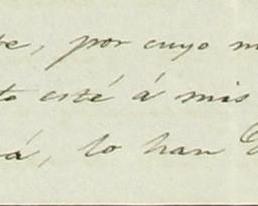 te, por cuyo m
to esté á mis
rá, lo han